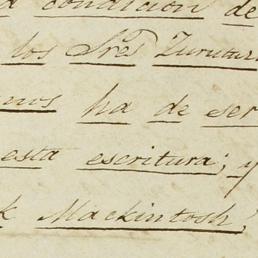 condicion de
los Sres
ha de ser
esta escritura; y
Mackintosh,